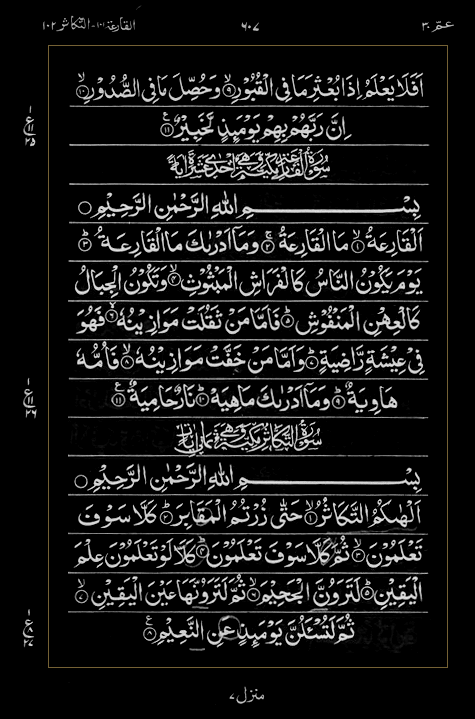 عمّ ۳۰ ۶۰۷ القارعة ۱۰۱ - التكاثر ۱۰۲
اَفَلَا يَعْلَمُ اِذَا بُعْثِرَ مَا فِى الْقُبُوْرِ ۙ‏﴿۹﴾ وَحُصِّلَ مَا فِى الصُّدُوْرِ ۙ‏﴿۱۰﴾
اِنَّ رَبَّهُمْ بِهِمْ يَوْمَئِذٍ لَّخَبِيْرٌ ﴿۱۱﴾ ع
ع ۱ ۱۱ ۲۵
سُوْرَةُ الْقَارِعَةِ مَكِّيَّةٌ وَّهِيَ اِحْدٰى عَشْرَةَ اٰيَةً
بِسْمِ اللّٰهِ الرَّحْمٰنِ الرَّحِيْمِ ○
اَلْقَارِعَةُ ۙ﴿۱﴾ مَا الْقَارِعَةُ ۚ﴿۲﴾ وَمَاۤ اَدْرٰىكَ مَا الْقَارِعَةُ ؕ﴿۳﴾
يَوْمَ يَكُوْنُ النَّاسُ كَالْفَرَاشِ الْمَبْثُوْثِ ۙ﴿۴﴾ وَتَكُوْنُ الْجِبَالُ
كَالْعِهْنِ الْمَنْفُوْشِ ؕ﴿۵﴾ فَاَمَّا مَنْ ثَقُلَتْ مَوَازِيْنُهٗ ۙ﴿۶﴾ فَهُوَ
فِىْ عِيْشَةٍ رَّاضِيَةٍ ؕ﴿۷﴾ وَاَمَّا مَنْ خَفَّتْ مَوَازِيْنُهٗ ۙ﴿۸﴾ فَاُمُّهٗ
هَاوِيَةٌ ؕ﴿۹﴾ وَمَاۤ اَدْرٰىكَ مَاهِيَهْ ؕ﴿۱۰﴾ نَارٌ حَامِيَةٌ ﴿۱۱﴾ ع
ع ۱ ۱۱ ۲۶
سُوْرَةُ التَّكَاثُرِ مَكِّيَّةٌ وَّهِيَ ثَمَانِ اٰيَاتٍ
بِسْمِ اللّٰهِ الرَّحْمٰنِ الرَّحِيْمِ ○
اَلْهٰىكُمُ التَّكَاثُرُ ۙ﴿۱﴾ حَتّٰى زُرْتُمُ الْمَقَابِرَ ؕ﴿۲﴾ كَلَّا سَوْفَ
تَعْلَمُوْنَ ۙ﴿۳﴾ ثُمَّ كَلَّا سَوْفَ تَعْلَمُوْنَ ؕ﴿۴﴾ كَلَّا لَوْ تَعْلَمُوْنَ عِلْمَ
الْيَقِيْنِ ؕ﴿۵﴾ لَتَرَوُنَّ الْجَحِيْمَ ۙ﴿۶﴾ ثُمَّ لَتَرَوُنَّهَا عَيْنَ الْيَقِيْنِ ۙ﴿۷﴾
ثُمَّ لَتُسْئَلُنَّ يَوْمَئِذٍ عَنِ النَّعِيْمِ ﴿۸﴾ ع
ع ۱ ۸ ۲۷
منزل ۷